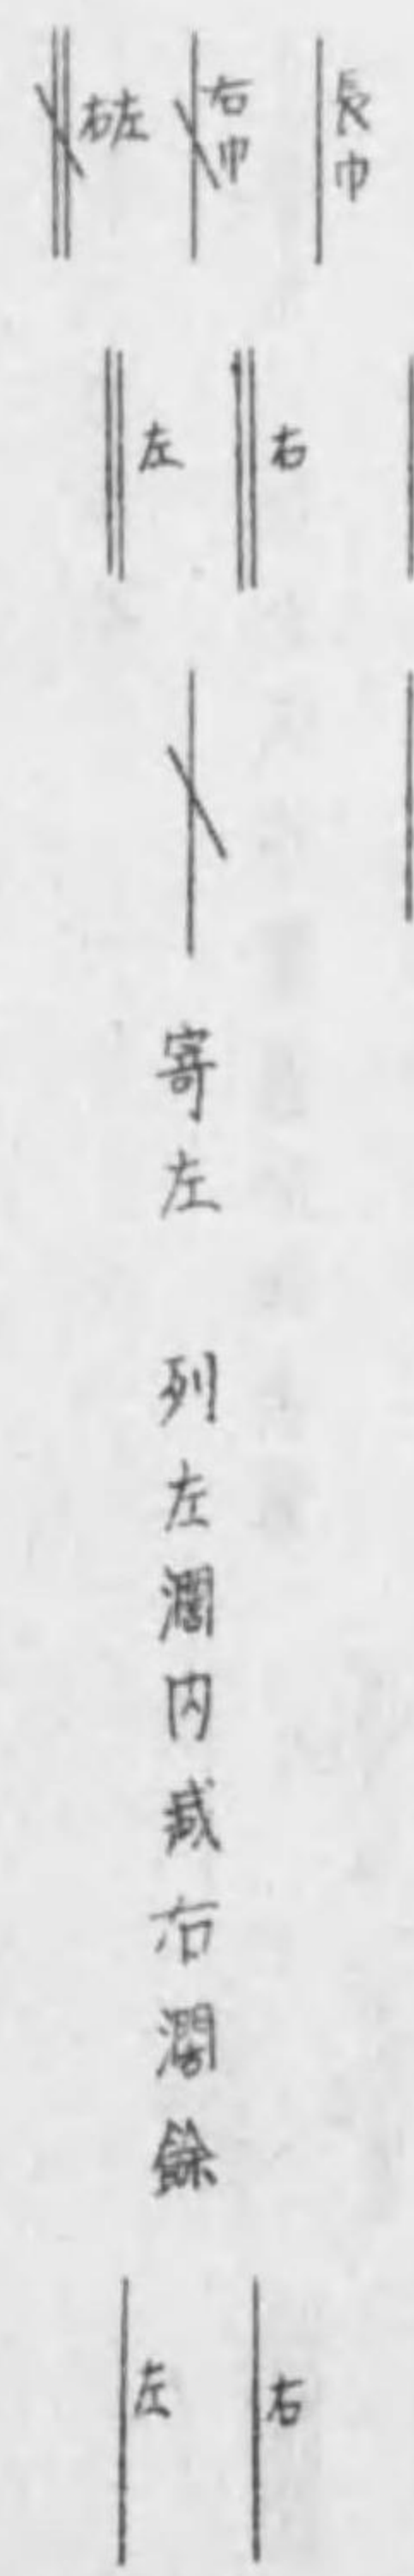 長巾
右巾
右左
右
左
寄左 列左濶内減右濶餘
右
左